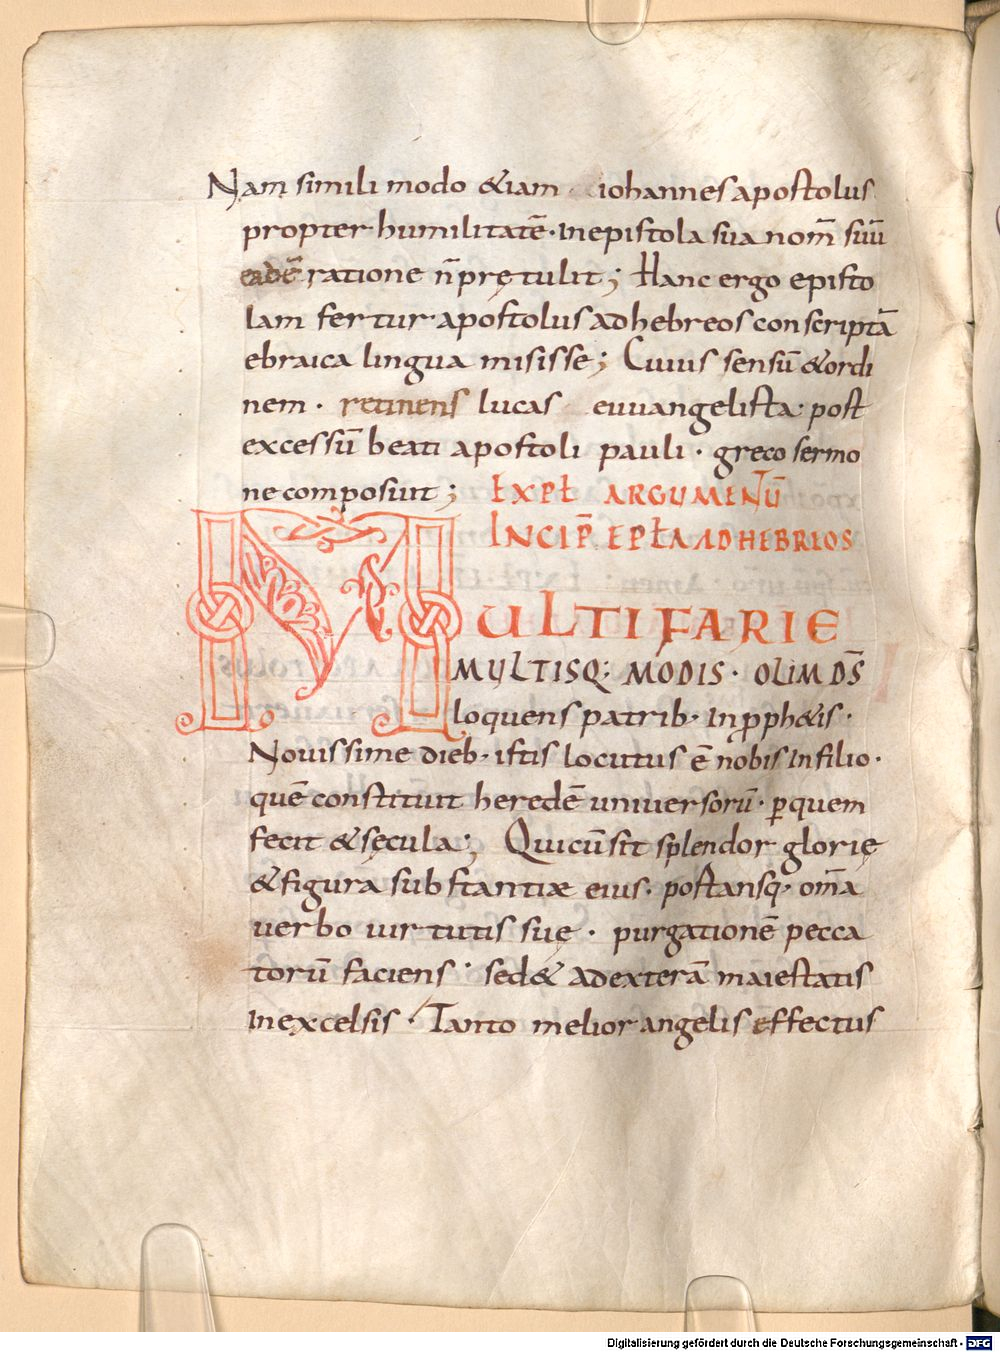 Nam simili modo &iam iohannes apostolus
propter humilitatē · In epistola sua nom̄ suū
eadē ratione n̄ prętulit ; Hanc ergo episto
lam fertur apostolus ad hebreos conscriptā
ebraica lingua misisse ; Cuius sensū & ordi
nem · retinens lucas euuangelista · post
excessū beati apostoli pauli · greco sermo
ne composuit ; EXPŁ ARGUMENTŪ
INCIP̄ EPŁA AD HEBREOS
MULTIFARIE
MULTISQ; MODIS · OLIM DS̄
loquens patrib· In ꝓph&is ·
Nouissime dieb· istis locutus ē nobis In filio ·
quē constituit heredē uniuersorū · ꝑ quem
fecit & sęcula ; Qui cū sit splendor glorię
& figura substantiæ eius · postansq· om̄a
uerbo uirtutis suę · purgationē pecca
torū faciens · sed& ad exterā maiestatis
In excelsis · Tanto melior angelis effectus
Digitalisierung gefördert durch die Deutsche Forschungsgemeinschaft - DFG